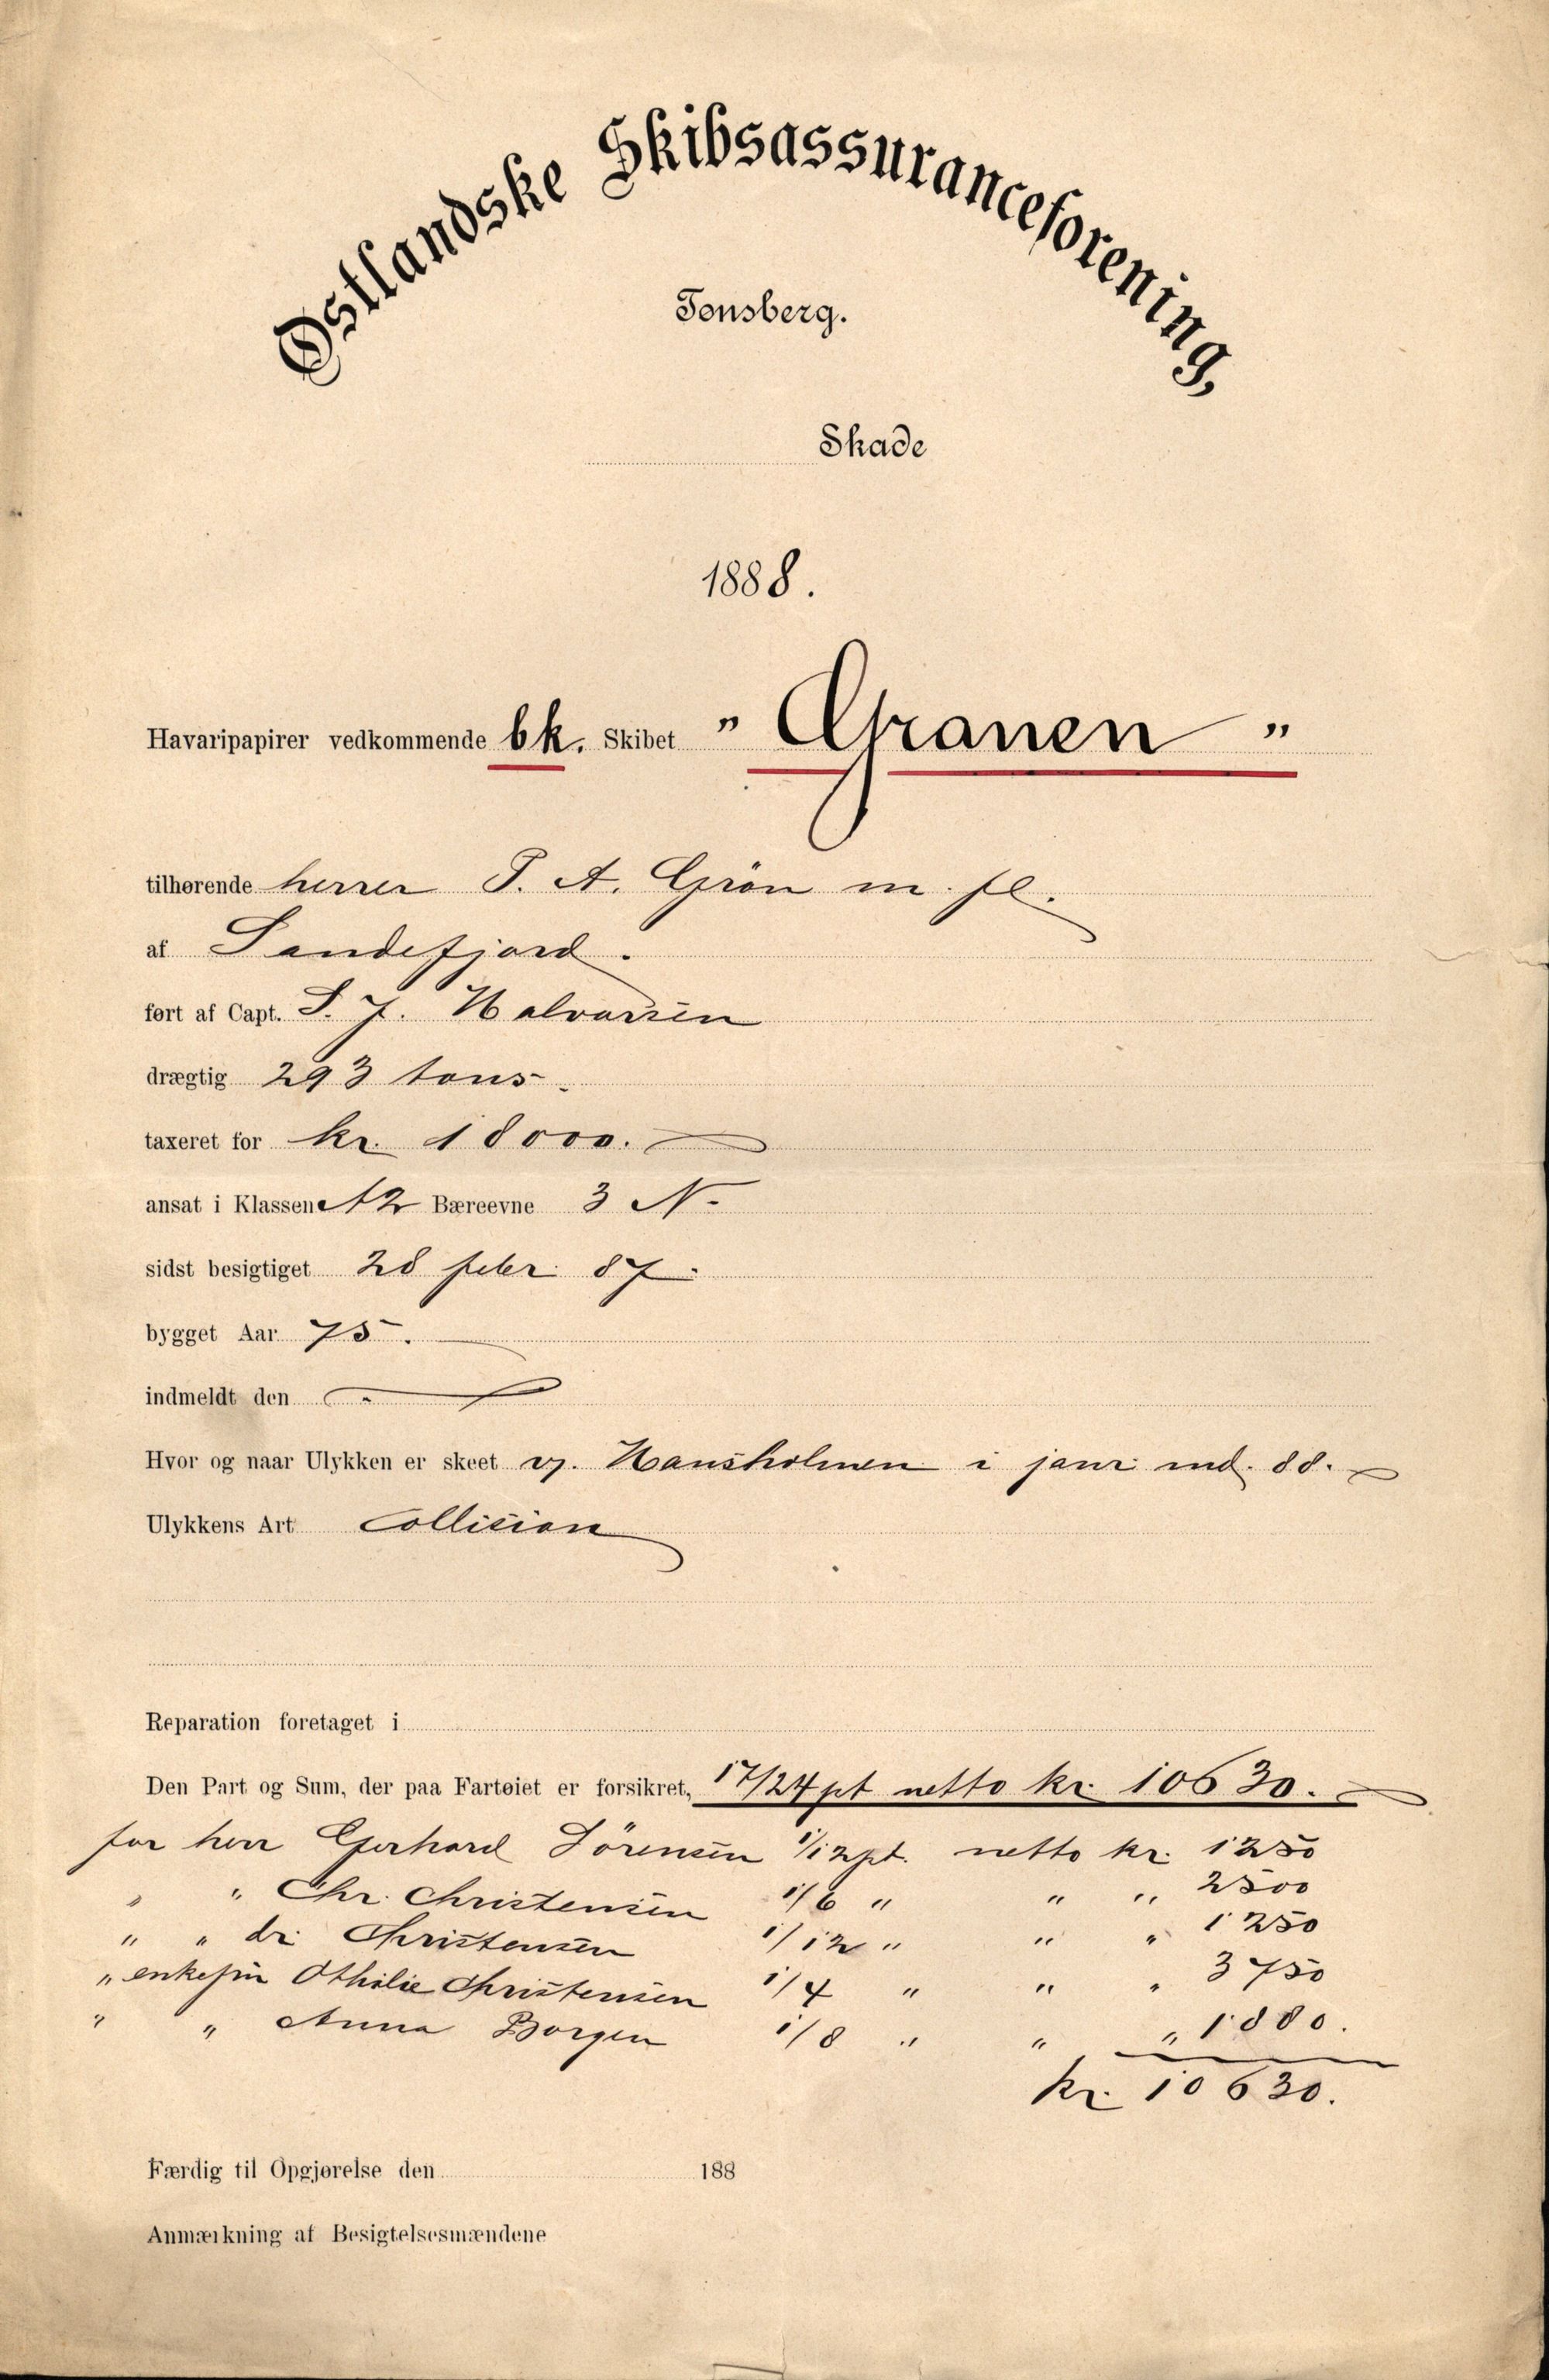 Østlandske Skibsassuranceforening,
Tønsberg.
Skade
1888.
Havaripapirer vedkommende bk. Skibet " Granen "
tilhørende herrer P. A. Grøn m. fl.
af Sandefjord.
ført af Capt. S. J. Halvorsen
drægtig 293 tons
taxeret for kr. 18000.
ansat i Klassen A2 Bæreevne 3 N.
sidst besigtiget 28 febr. 87.
bygget Aar 75.
indmeldt den
Hvor og naar Ulykken er skeet v. Hansholmen i janr. md. 88.
Ulykkens Art Collision
Reparation foretaget i
Den Part og Sum, der paa Fartøiet er forsikret, 17/24 pt netto kr. 10630.
for herr Gerhard Sörensen 1/12 pt. netto kr. 1250
" " Chr. Christensen 1/6 " " " 2500
" " dr. Christensen 1/12 " " " 1250
" enkefru Othilie Christensen 1/4 " " " 3750
" " Anna Borgen 1/8 " " " 1880.
kr. 10630.
Færdig til Opgjørelse den 188
Anmærkning af Besigtelsesmændene